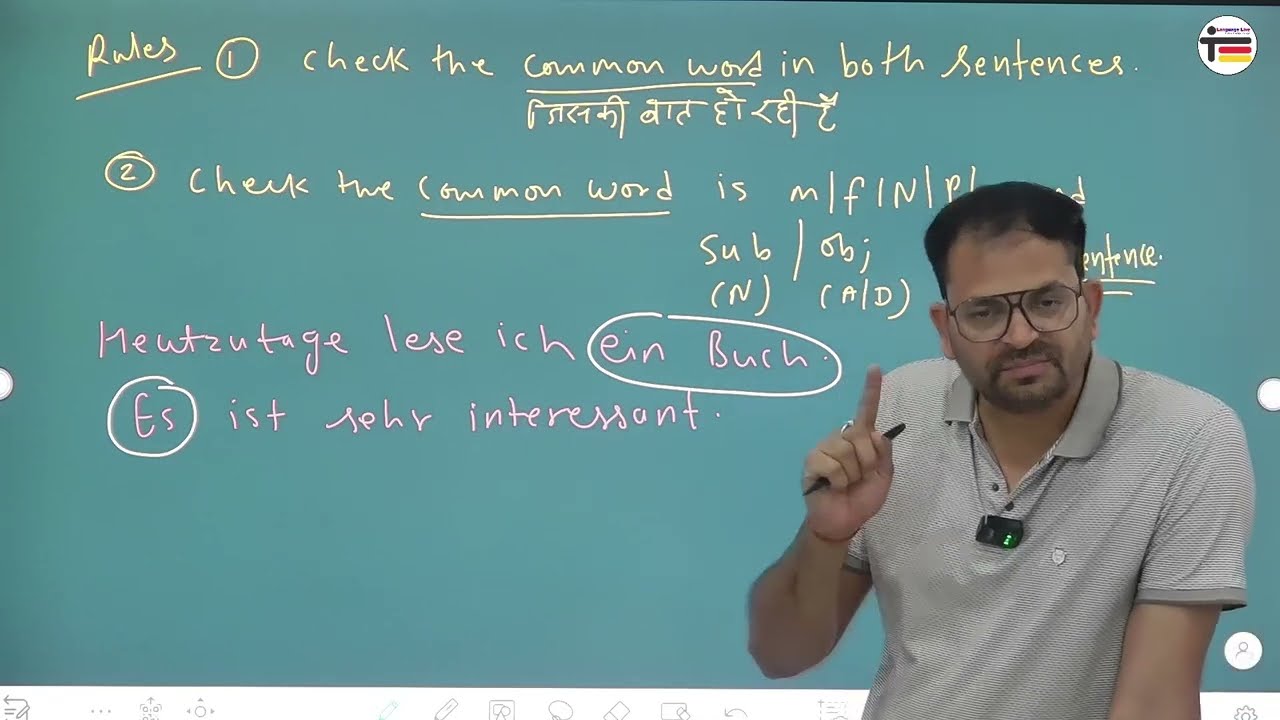 Language Live
Rules ① Check the common word in both sentences.
जिसकी बात हो रही है
② Check the common word is m|f|N|P|
Sub | obj
(N) (A|D)
Heutzutage lese ich ein Buch.
Es ist sehr interessant.